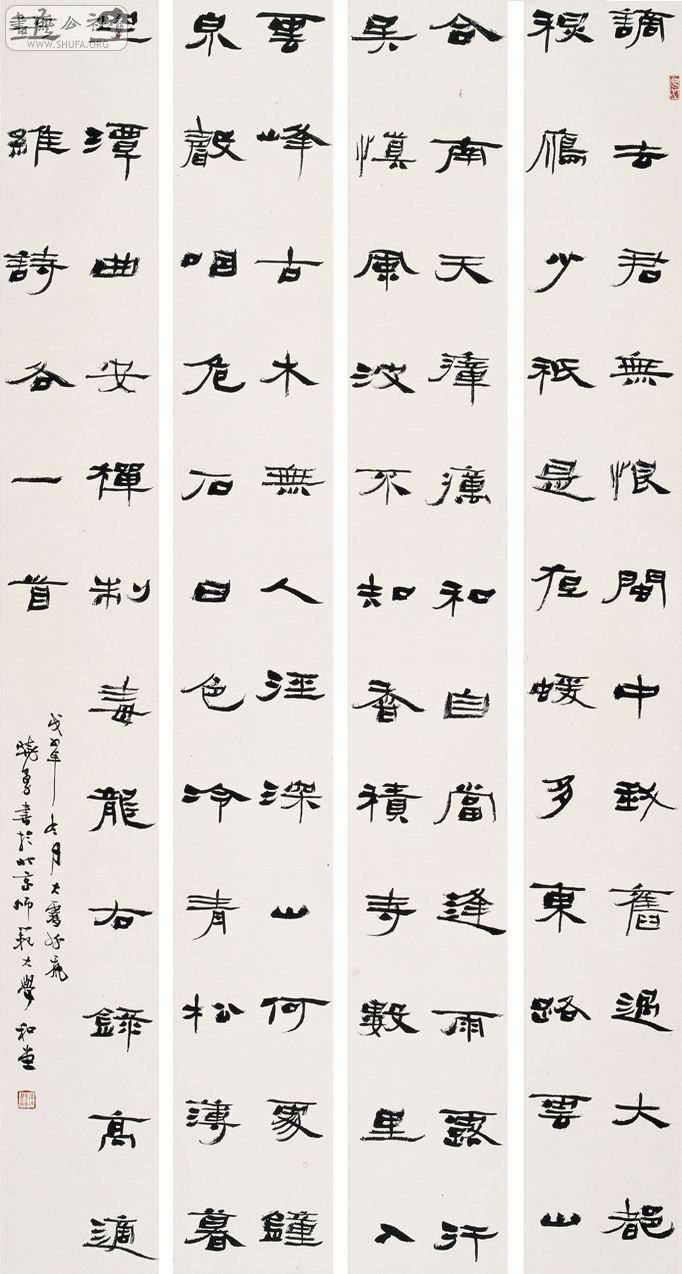 謫去君無恨閩中我舊過大都
秋鴈少祇是夜猨多東路雲山
合南天瘴癘和自當逢雨露行
矣慎風波不知香積寺數里入
雲峰古木無人徑深山何處鐘
泉聲咽危石日色冷青松薄暮
空潭曲安禪制毒龍右錄高適
王維詩各一首
年冬月大雪
曉勇書於北京師範大學和堂
WWW.SHUFA.ORG